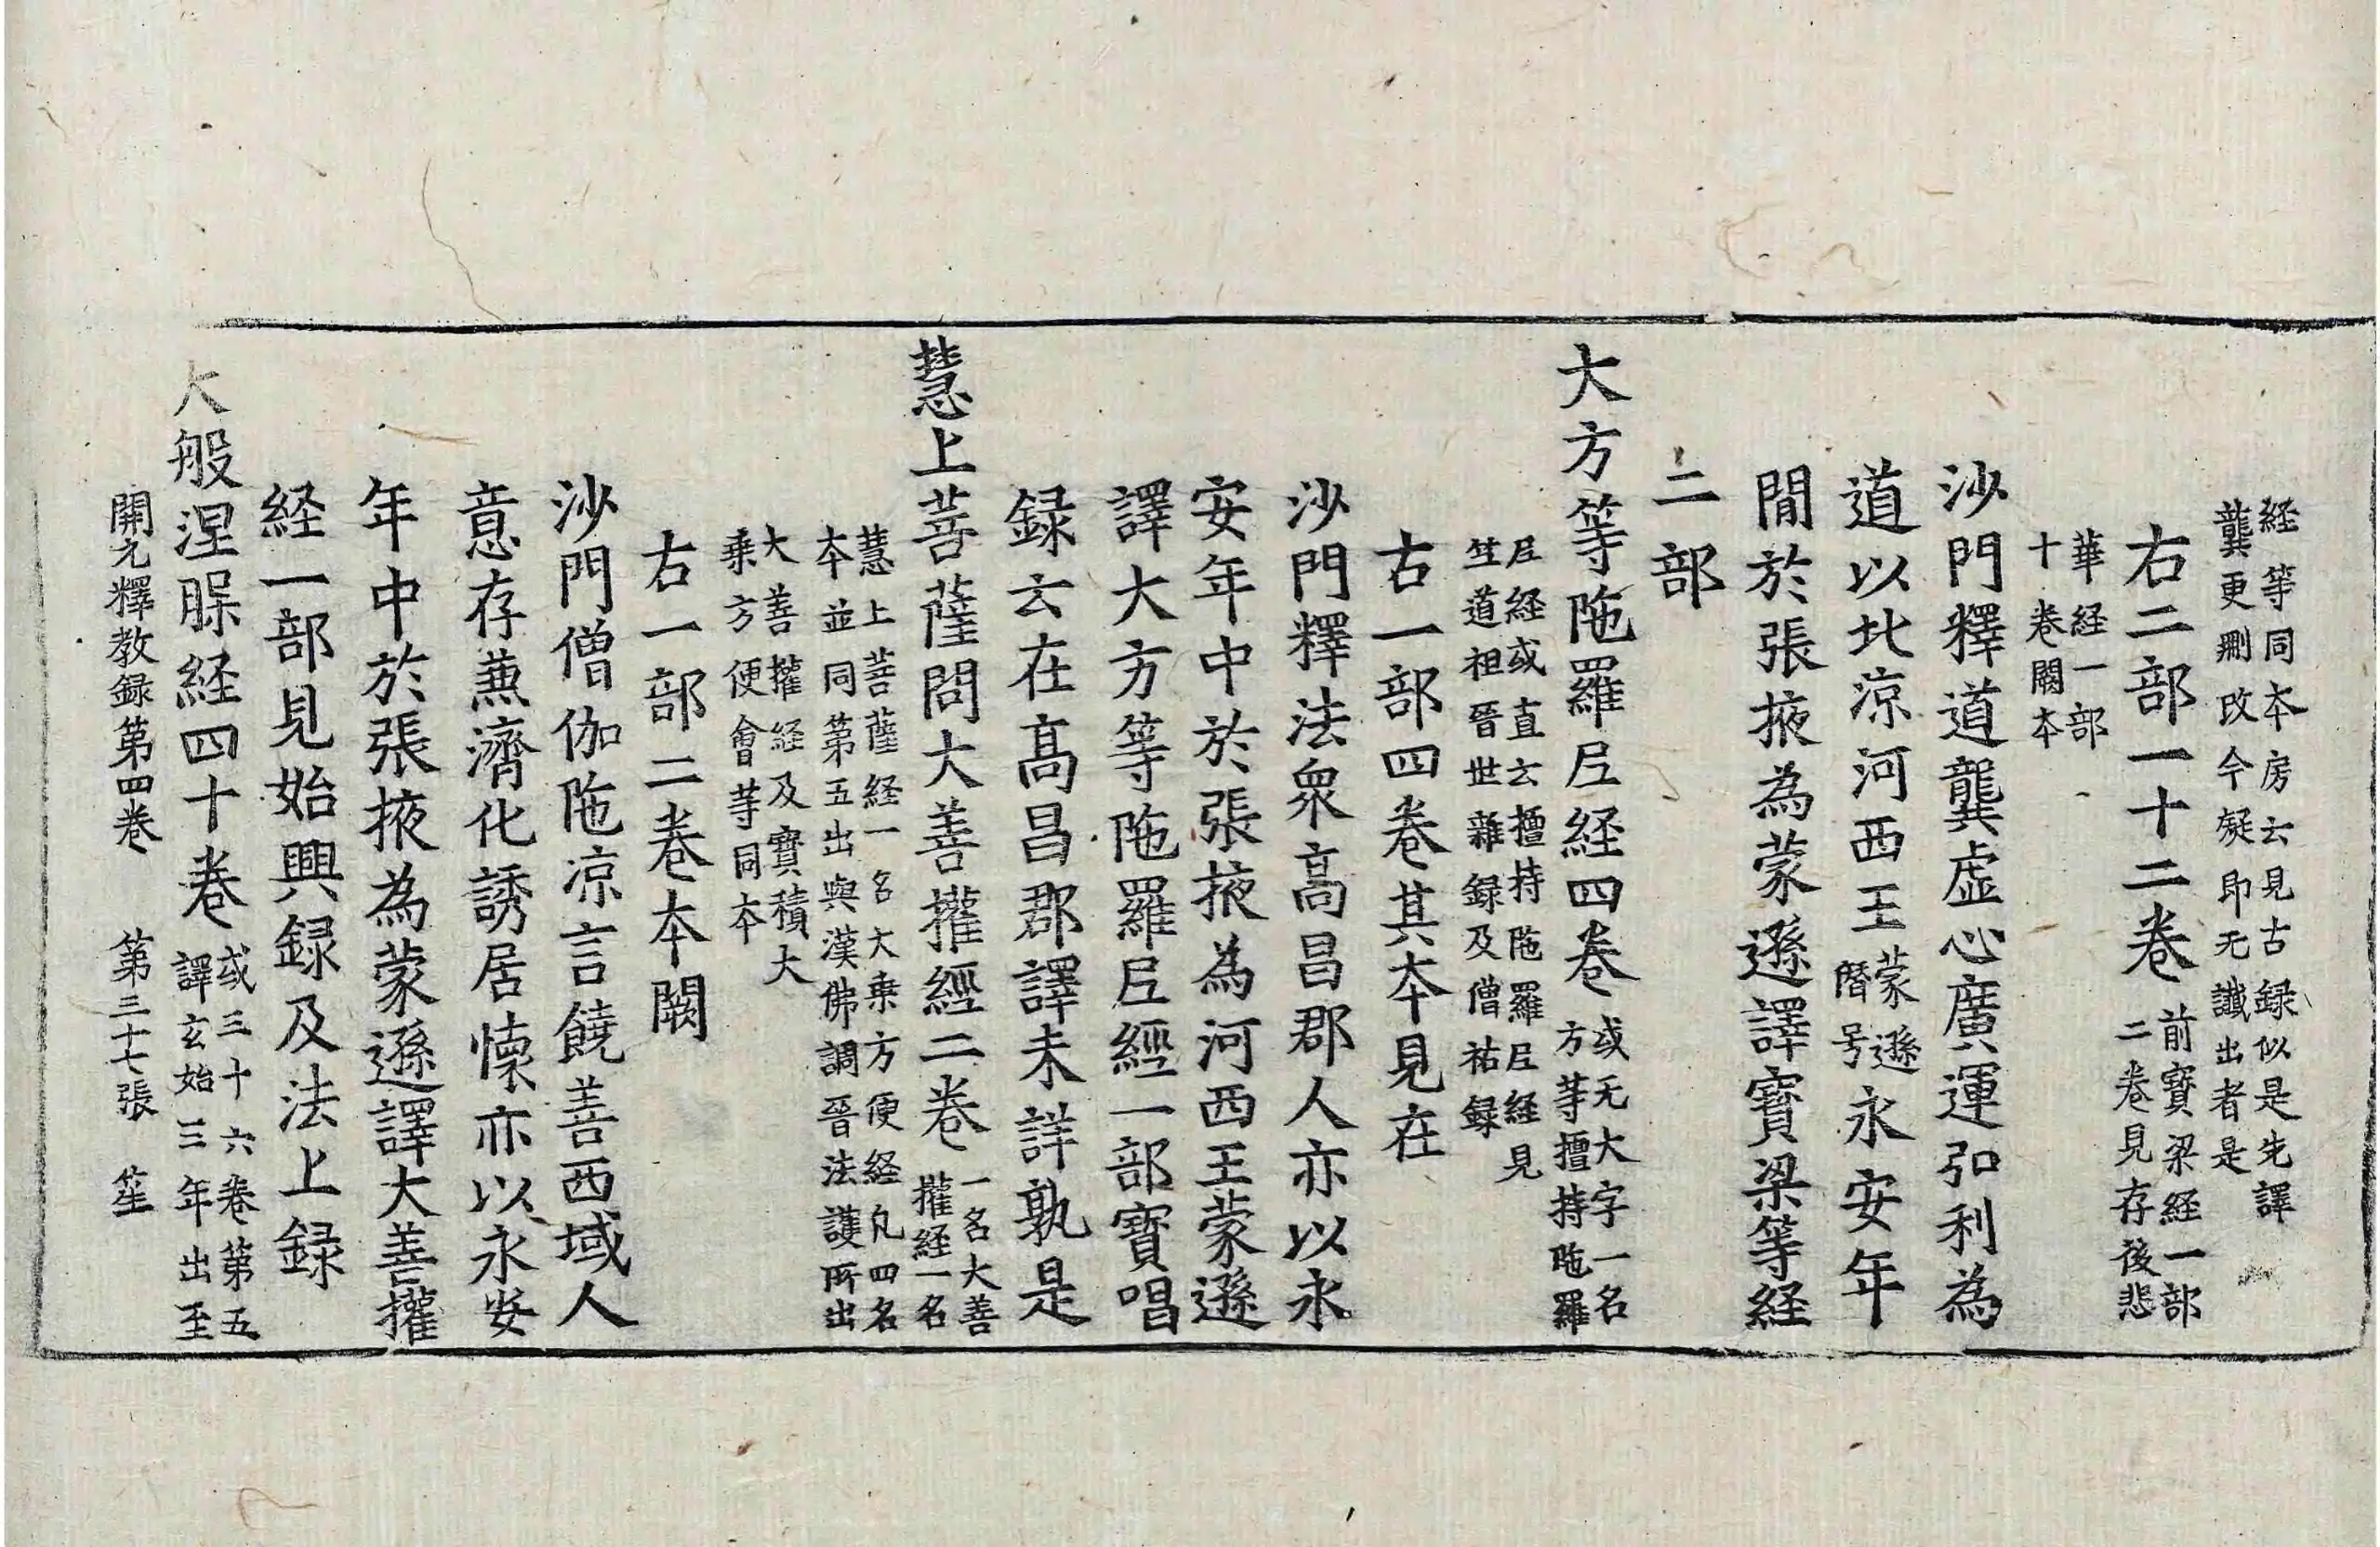 経等同本房云見古録似是先譯
龔更刪改今疑即无讖出者是
右二部一十二卷前寶梁経一部二卷見存後悲
華経一部十卷闕本
沙門釋道龔虚心廣運弘利為
道以北涼河西王蒙遜僭号永安年
閒於張掖為蒙遜譯寶梁等経
二部
大方等陁羅尼経四卷或无大字一名方等擅持陁羅
尼経或直云擅持陁羅尼経見竺道祖晉世雜録及僧祐録
右一部四卷其本見在
沙門釋法衆高昌郡人亦以永
安年中於張掖為河西王蒙遜
譯大方等陁羅尼經一部寶唱
録云在高昌郡譯未詳孰是
慧上菩薩問大善攉經二卷一名大善攉経一名
慧上菩薩経一名大乗方便経凡四名本並同第五出與漢佛調晉法護所出
大善攉経及寶積大乗方便會等同本
右一部二卷本闕
沙門僧伽陁凉言饒善西域人
意存蒹濟化誘居懐亦以永安
年中於張掖為蒙遜譯大善攉
経一部見始興録及法上録
大般涅槃経四十卷或三十六卷第五譯玄始三年出至
開元釋教録第四卷 第三十七張 笙